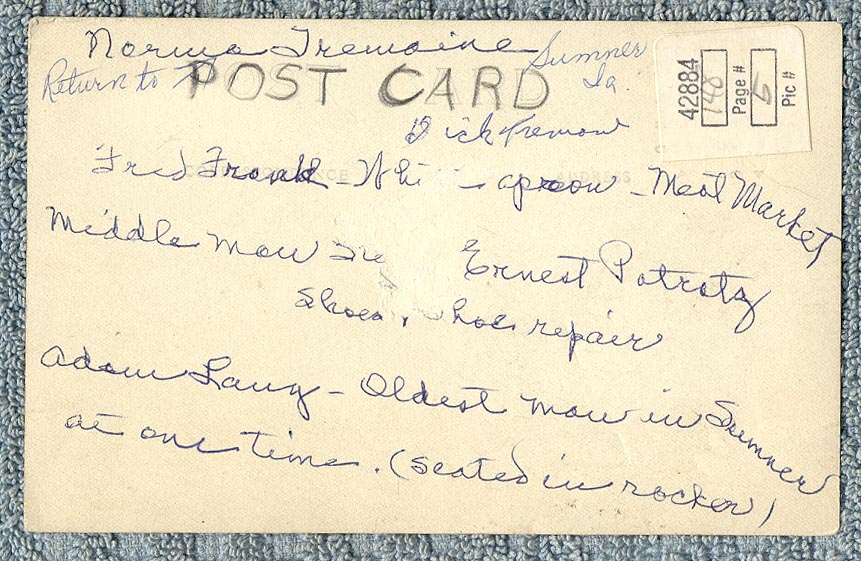 Norma Tremaine
Return to
Sumner
Ia.
POST CARD
42884
148
Page #
5
Pic #
Dick Tremain
CORRESPONDENCE ADDRESS
Fred Frank - Whi apron - Meat Market
Middle man Ernest Potratz
Shoes, shoe repair
Adam Lang - Oldest man in Sumner
at one time. (seated in rocker)